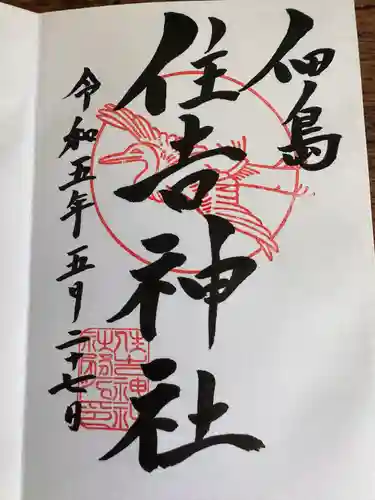 佃島
住吉神社
令和五年五月二十七日
住吉神社